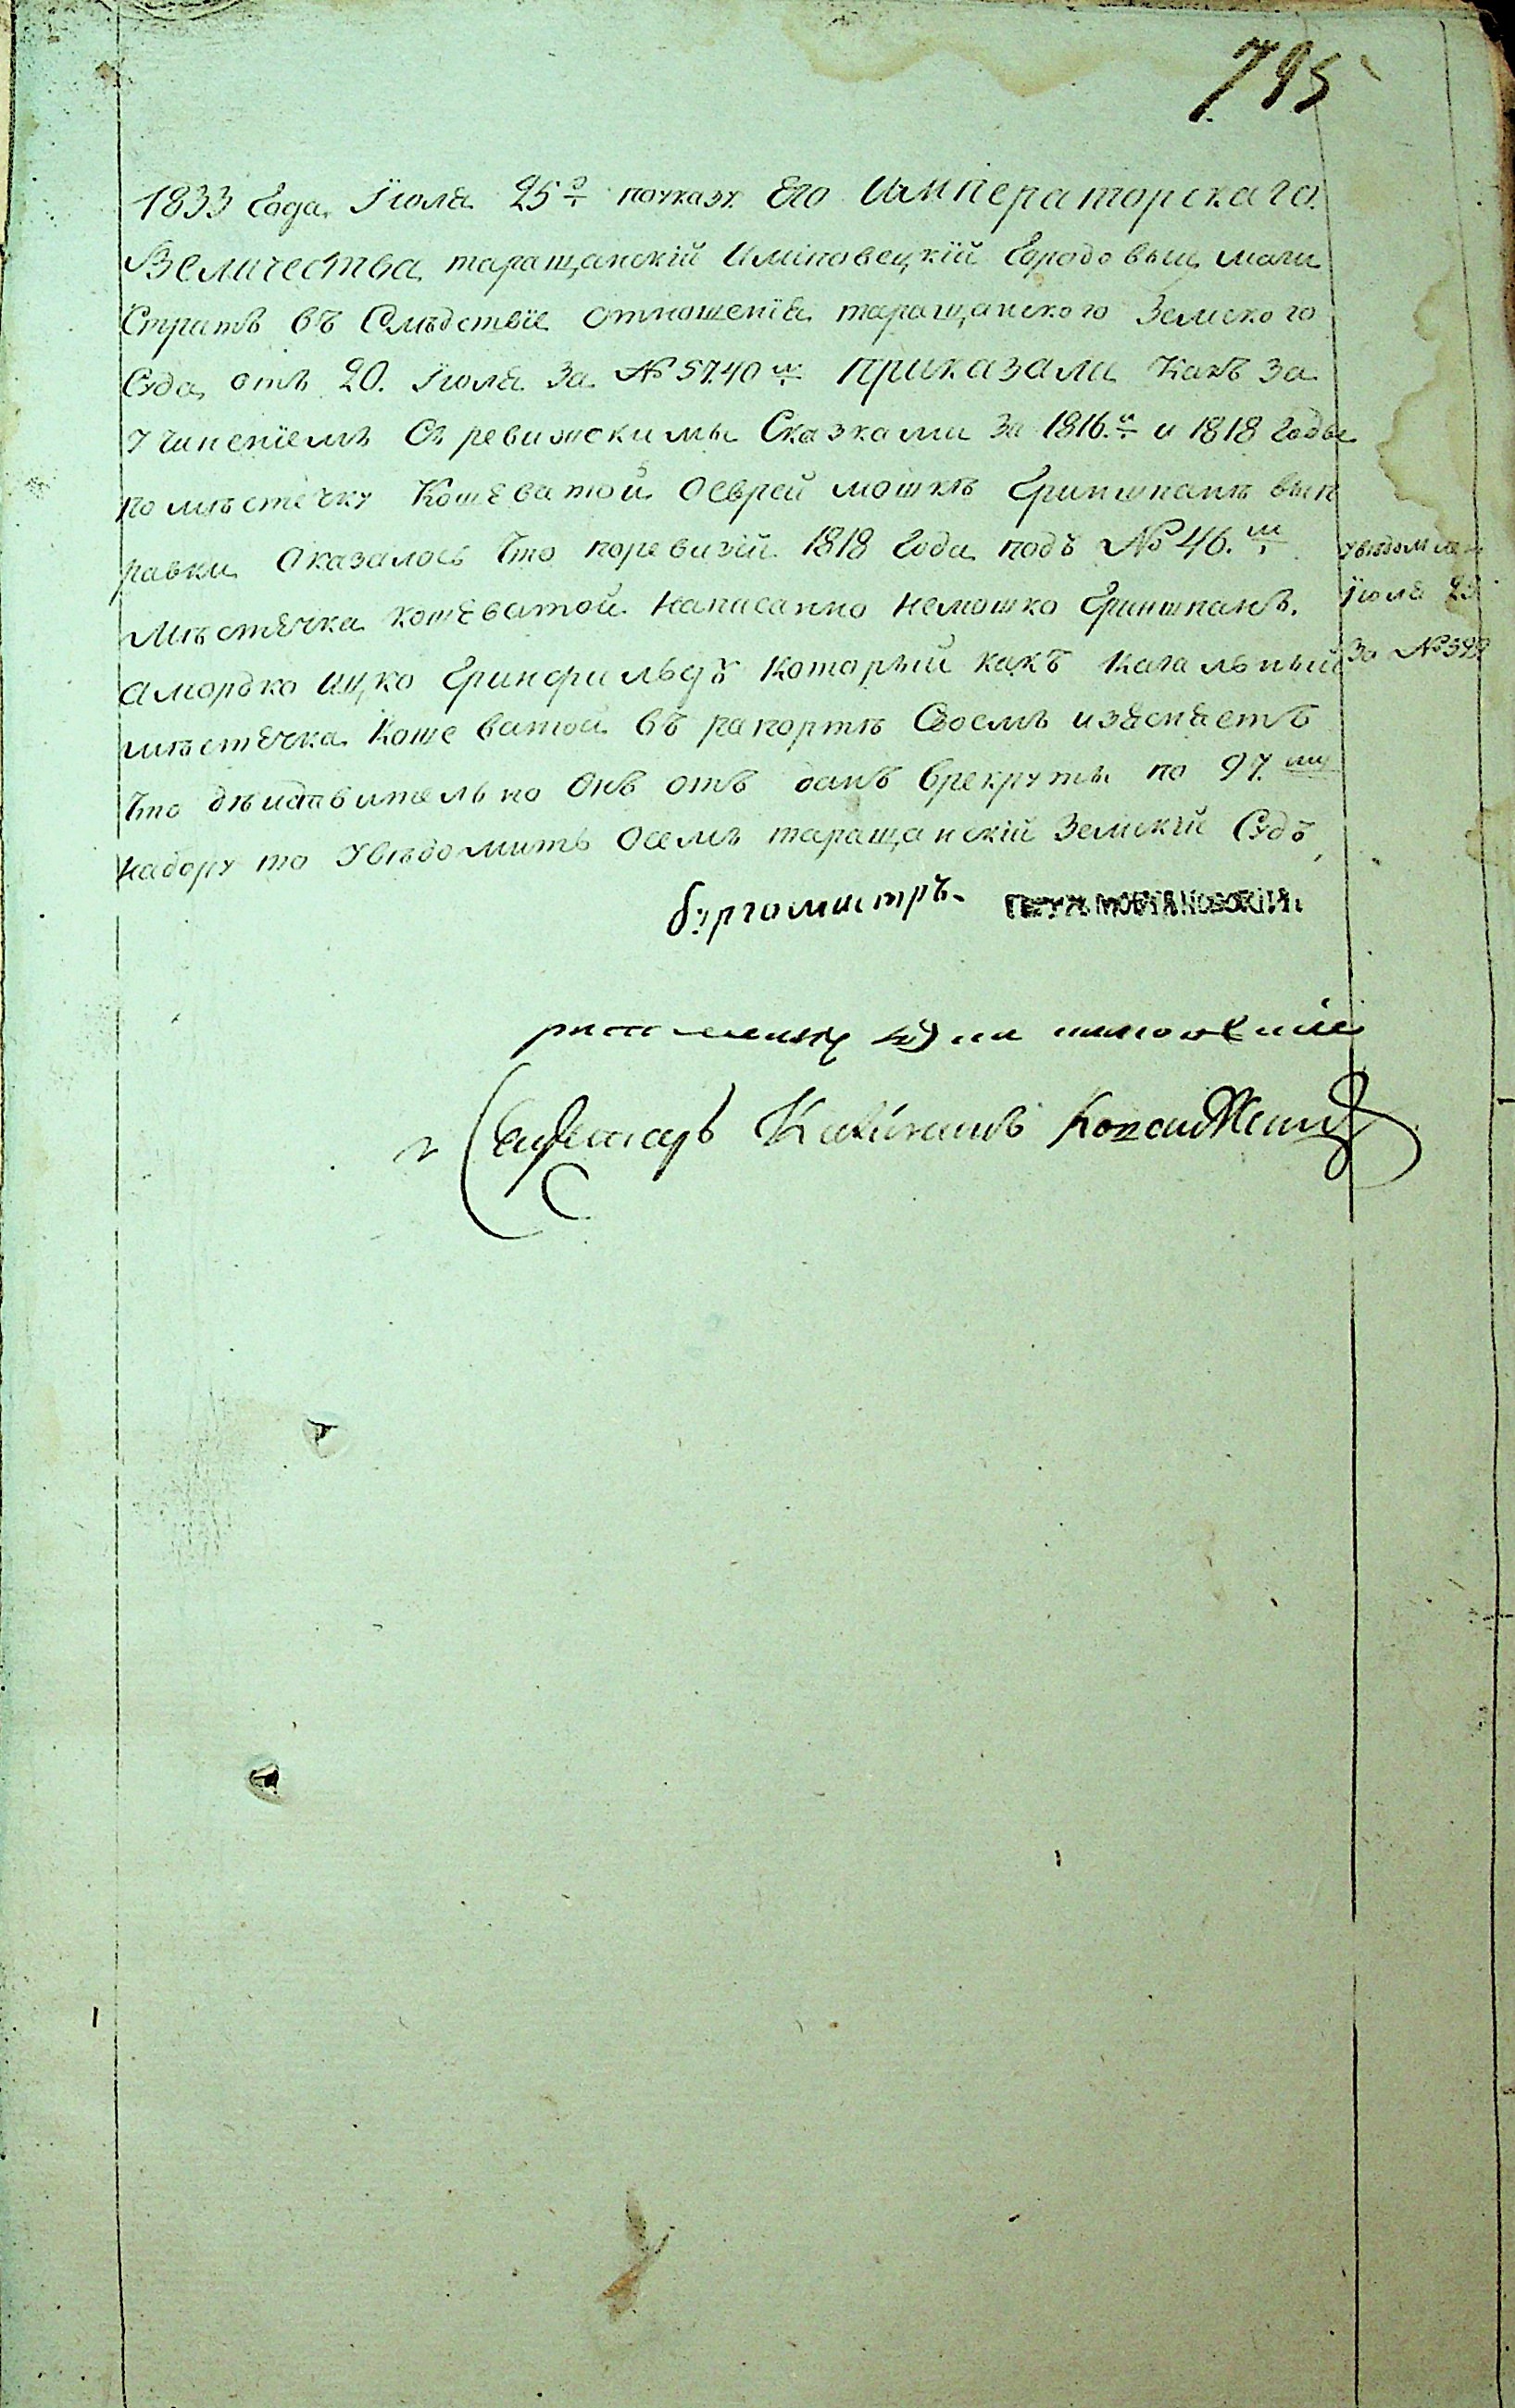 795
1833 Года Iюля 25 го поуказу Его Императорскаго
Величества таращанскiй Илиповецкiй Городовыи маги
Стратъ въ Слѣдствiе отношенiя таращанского Земского
Суда отъ 20. Iюля За №5740 м приказали Какъ За
учиненiемъ Съ ревижскимы Сказками За 1816. и и 1818 Годы
по мѣстечку Кошеватой Оеврей мошкѣ Гриншпанѣ вып
равки Оказалось Что поревизiй 1818 Года подъ №46. м
Мѣстечка кошеватой Написанно немошко Гриншпанъ.
амордко ицко Гринфильдъ Которыи какъ кагальный
мѣстечка Кошеватой въ рапортѣ Своемъ изясняетъ
Что дѣиствительно Онъ отъ данъ врекруты по 97. му
набору то Увѣдомить Осемъ таращанскiй Земскiй Судъ
увѣдомлен
Iюля 25
За №599
бургомистръ
Секретарь